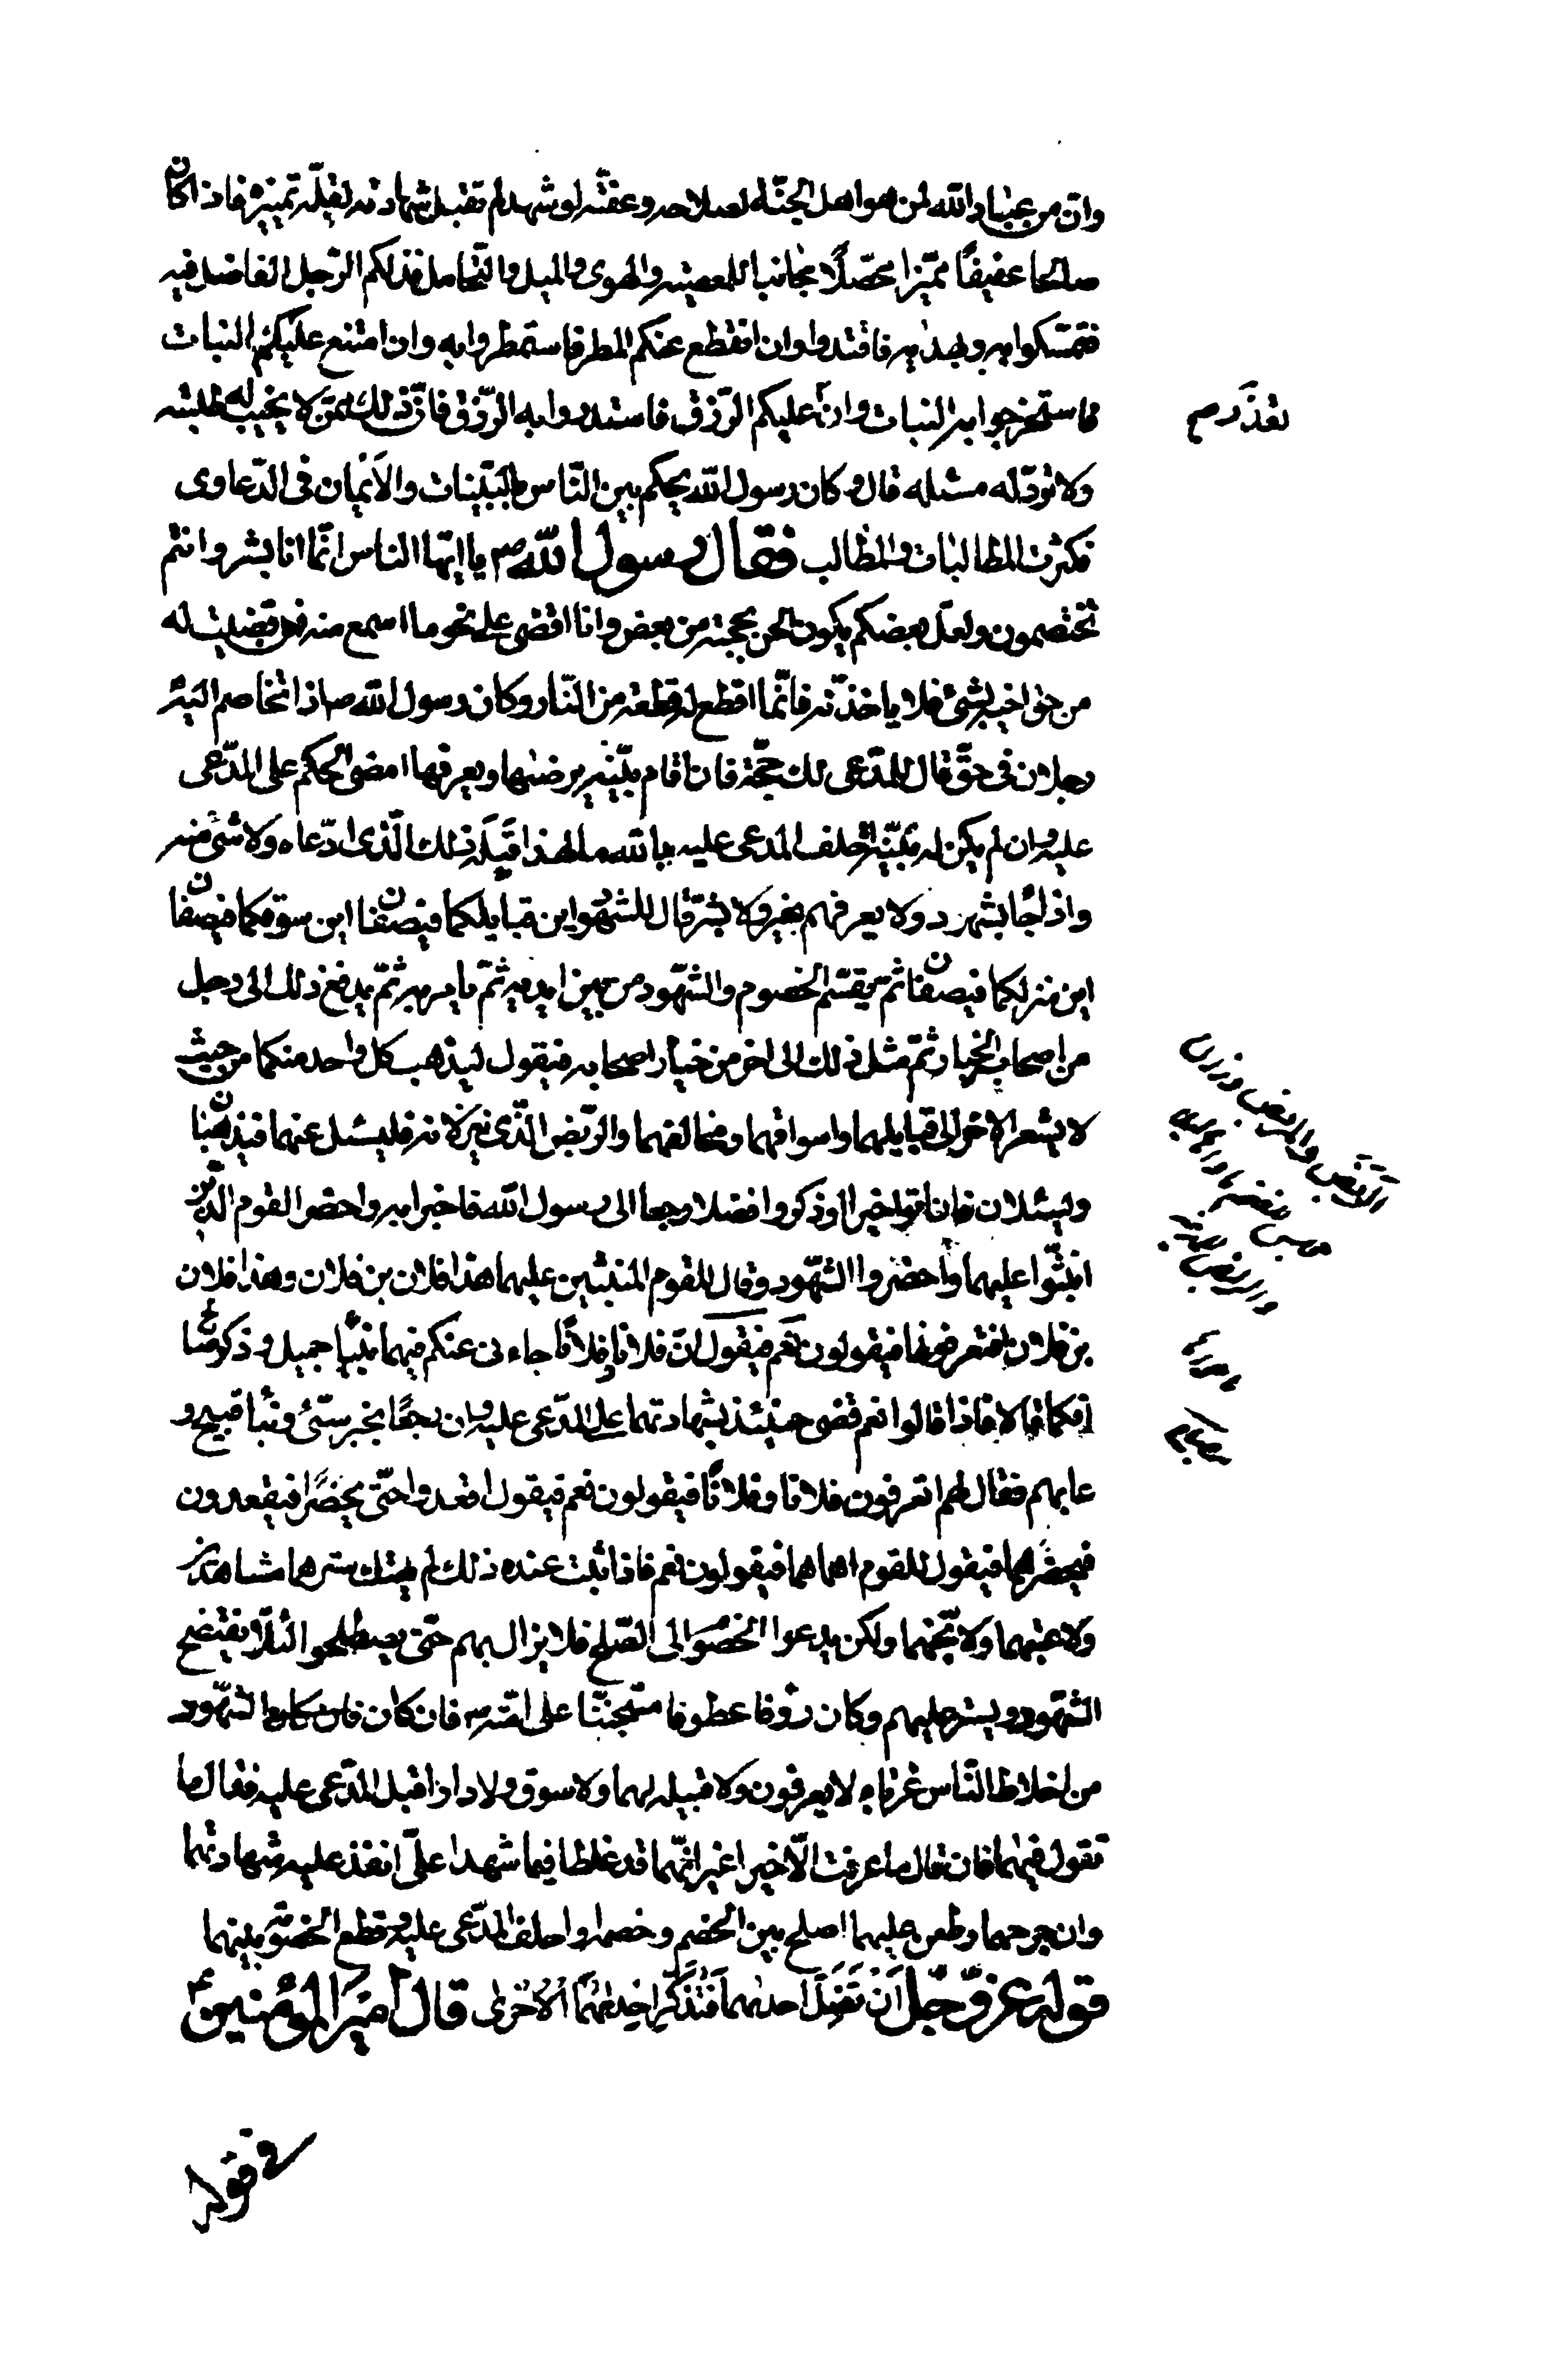 وان من عباد الله لمن هو اهل الجنّة لصلاحه وعفّته لو شهد لم تقبل شهادته لقلّة تميزه فاذا كان
صالحا عفيفًا مميّزا محصّلًا مجانبا للمعصية والهوى والميل والتّحامل فذلكم الرّجل الفاضل فيه
فتمسّكوا به وبهديه فاقتدوا وان انقطع عنكم المطر فاستمطروا به وان امتنع عليكم النبات
فاستخرجوا به النبات وان عليكم الرّزق فاستدروا به الرّزق فانّ ذلك ممّن لا يخيب له طلبته
تعذّر صح
ولا تردّ له مسئلة قال و كان رسول الله يحكم بين النّاس بالبيّنات والايمان فى الدّعاوى
فكثرت المطالبات والمظالب فقال رسول الله ص يا ايّها الناس انّما انا بشر وانتم
تختصمون ولعلّ بعضكم يكون الحن بحجته من بعض وانا اقضى على نحو ما اسمع منه فمن قضيت له
من حق اخيه بشئ فلا ياخذنّه فانّما اقطع له قطعة من النّار وكان رسول الله ص اذا تخاصم اليه
رجلان فى حقّ قال للمدّعى لك حجّة فان اقام بيّنة يرضيها ويعرفها امضى الحكم على المدّعى
عليه وان لم يكن له بيّنة حلف المدعى عليه بالله ما لهذا قبله ذلك الّذى ادّعاه ولا شئ منه
واذا جا بشهود ولا يعرفهم بخير ولا بشرّ قال للشهود اين قبايلكما فيصفان اين سوقكما فيصفان
اين منزلكما فيصفان ثم يقيم الخصوم والشّهود من بين ايديه ثمّ يامر به ثمّ يدفع ذلك الى رجل
من اصحابه الخيار ثمّ مثل ذلك الى اخر من خيار اصحابه فيقول ليذهب كل واحد منكما من حيث
لا يشعر الاخر الى قبايلهما واسواقهما ومحالهما والرّبض الّذى ينزلانه فليسئل عنهما فيذهبان
ويسئلان فان اتوا خيرا وذكروا فضلا رجعا الى رسول الله فاخبرا به واحضر القوم الّذين
اثنوا عليهما واحضروا الشهّود وقال للقوم المثنين عليهما هذا فلان بن فلان وهذا فلان
بن فلان اتعرفونهما فيقولون نعم فيقول انّ فلانا وفلانًا جاءنى عنكم فيهما بنبإ جميل و ذكر صالح
افكما قالا فاذا قالوا نعم قضى حينئذ بشهادتهما على المدّعى عليه وان رجعا بخبر سيّئ ونبأ قبيح و
عابهم فقال لهم اتعرفون فلانا وفلانًا فيقولون نعم فيقول اقعدوا حتّى يحضرا فيقعدون
فيحضرهما فيقول للقوم اهما هما فيقولون نعم فاذا ثبت عنده ذلك لم يهتك ستر هما
ولا عبّهما ولا وبّخهما ولكن يدعوا الخصوم الى الصّلح فلا يزال بهم حتّى يصطلحوا لئلّا يفتضح
الشّهود ويستر عليهم وكان رؤفا عطوفا متحنّنا على امّته ص فان كان الشّهود
من اخلاط النّاس غرباء لا يعرفون ولا قبيلة لهما ولا سوق ولا دار اقبل المدّعى عليه فقال ما
تقول فيهما فان قال ما عرفت الّا خيرا غير انّهما قد غلطا فيما شهدا علىّ انفذ عليه شهادتهما
وان جرحهما وطعن عليهما اصلح بين الخصم وخصمه واحلف المدّعى عليه وقطع الخصومة بينهما
قوله عزّ وجّل اَنْ تَضِلَّ احديهما فَتُذَكِّرَ اِحْديهُمَا الْاُخْرى قال اميرَ المؤمنين ع
فى قوله